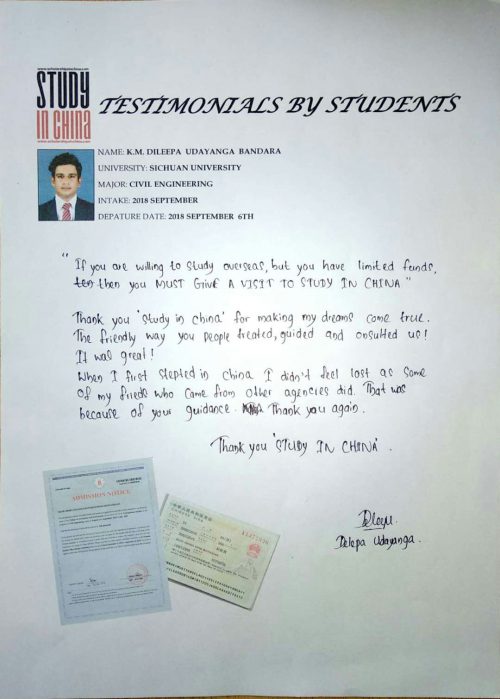 STUDY
IN CHINA
TESTIMONIALS BY STUDENTS
NAME: K.M. DILEEPA UDAYANGA BANDARA
UNIVERSITY: SICHUAN UNIVERSITY
MAJOR: CIVIL ENGINEERING
INTAKE: 2018 SEPTEMBER
DEPATURE DATE: 2018 SEPTEMBER 6TH
" If you are willing to study overseas, but you have limited funds,
then you MUST GIVE A VISIT TO STUDY IN CHINA."
Thank you 'study in china' for making my dreams come true.
The friendly way you people treated, guided and onsulted us!
It was great!
When I first stepted in China I didn't feel lost as some
of my frieds who came from other agencies did. That was
because of your guidance. Thank you again.
Thank you 'STUDY IN CHINA'.
Delepa Udayanga.
ADMISSION NOTICE